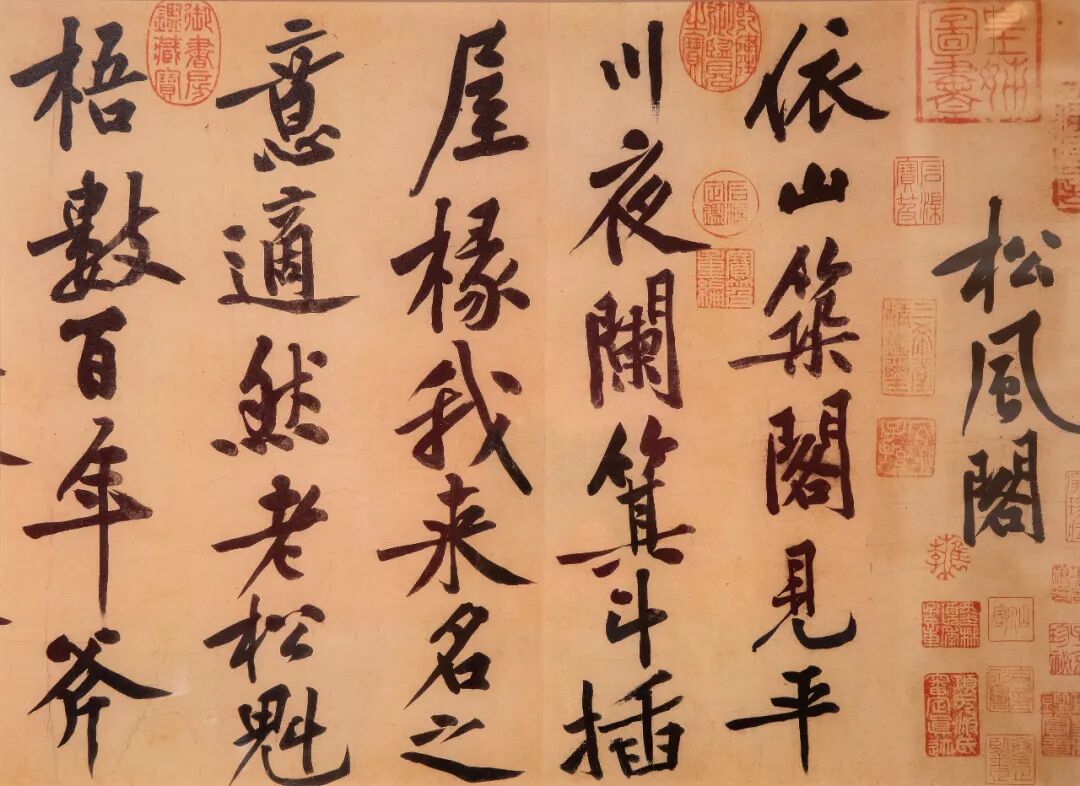 松風閣
依山築閣見平
川夜闌箕斗插
屋椽我来名之
意適然老松魁
梧數百年斧
御書房鑑藏寶